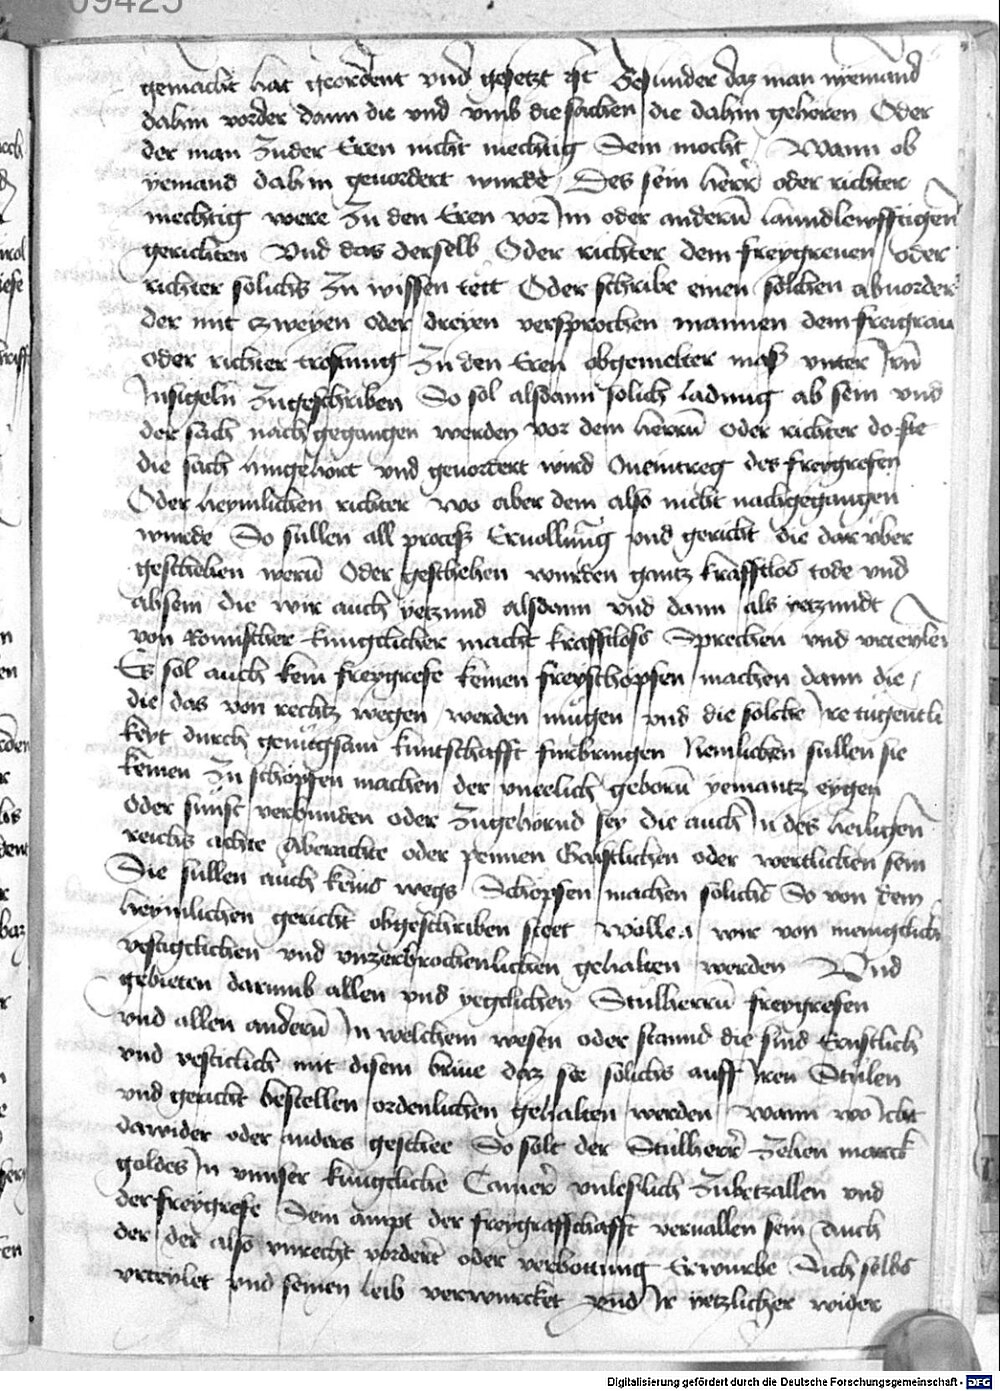 09425
gemacht hat geordent vnd gesetzt ist Besunder daz man nyemand
dahin vorder dann die vnd vmb die sachen die dahin gehoren Oder
der man Zu der Eren nicht mechtig Sein mocht / Wann ob
yemand dahin geuordert wurde / Des sein herr oder richter
mechtig were Zu den Eren vor Im oder anderñ lanndlewfftigen
gerichten Vnd das derselb Oder richter dem freygreuen / oder
richter solichs Zu wissen tett Oder schribe einen solchen abuorder
der mit zweyen oder dreyen versprochen mannen dem freigrau
oder richter trostung Zu den Eren obgemelter mass vnter Irñ
Insigeln Zugeschriben So sol alsdann solich ladung ab sein vnd
der sach nachgegangen werden vor dem herrñ oder richter do sie
die sach hingehort vnd geuordert wird On eintreg des freygrefen
Oder heymlichen richter wo aber dem also nicht nachgegangen
wurde So sullen all process Ervollung vnd gericht die daruber
geschehen werñ Oder geschehen wurden gantz krafftlos tode vnd
absein die wir auch yetzund alsdann vnd dann als yetzundt
von Romischer kungclicher macht krafftloss Sprechen vnd vrteylen
Es sol auch kein freygrefe keinen freyschopfen machen dann die /
die das von rechtz wegen werden mugen vnd die solche Ire tugentli
keyt durch genugsam kuntschafft furbringen Nemlichen sullen sie
keinen Zu schopfen machen der vneelich geborñ yemantz eygen
oder sunst verbunden oder Zugehornd sey die auch In des heiligen
reichs achte Aberachte oder pennen Geistlichen oder wertlichen sein
Sie sullen auch keins wegs Schopfen machen solichs So von dem
heymlichen gericht obgeschriben steet wollen wir von meniglich
vestigclichen vnd vnzerbrochenlichen gehalten werden Vnd
gebieten darumb allen vnd yegclichen Stulherrñ freygrefen
vnd allen anderñ In welchem wesen oder stannd die sind Ernstlich
vnd vesticlich mit disem briue daz sie solichs auff Iren Stulen
vnd gericht bestellen ordenlichen gehalten werden Wann wo Icht
dawider oder anders geschee So solt der Stulherr Zehen marck
goldes In vnnser kungcliche Camer vnleslich Zubetzallen vnd
der freygrefe Sein ampt der freygraffschafft veruallen sein Auch
der der also vnrecht vordert oder verbottung Erwurbe Sich selbs
vrteylet vnd seinen leib verwurcket vnd Ir yetzlicher wider
Digitalisierung gefördert durch die Deutsche Forschungsgemeinschaft - DFG